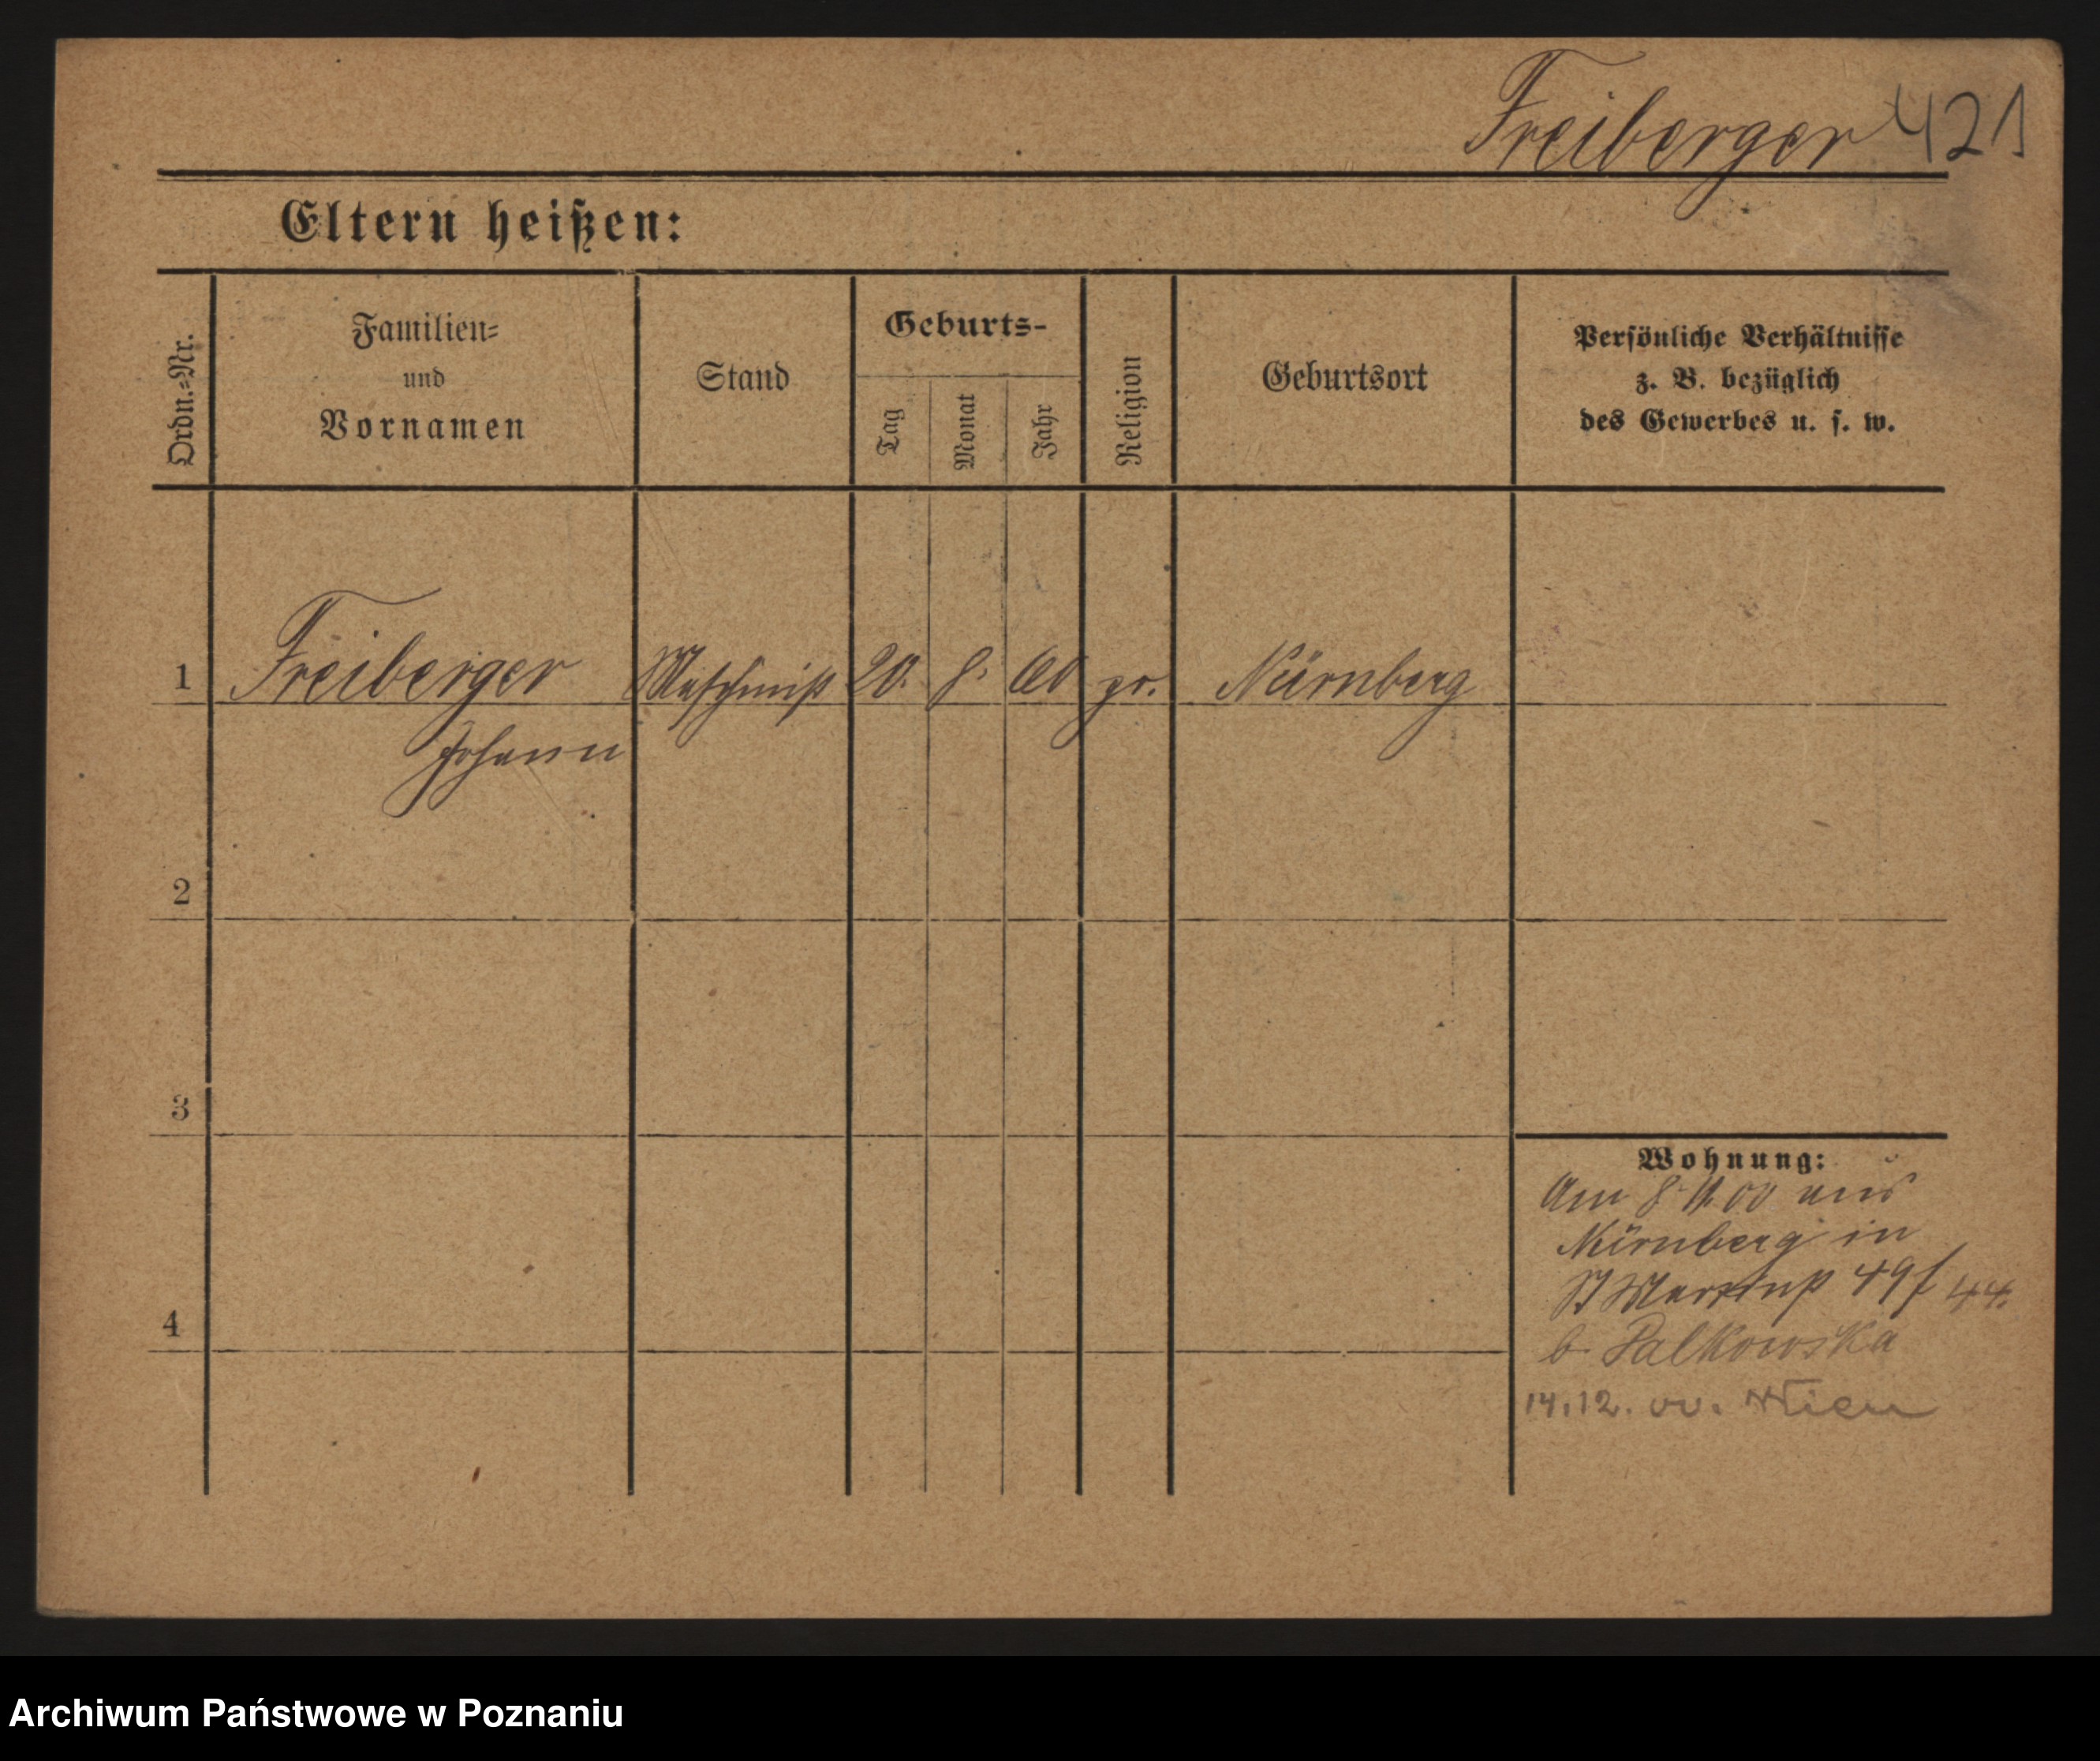 Freiberger 421
Eltern heißen:
Ordn.=Nr.
Familien=
und
Vornamen
Stand
Geburts-
Tag
Monat
Jahr
Religion
Geburtsort
Persönliche Verhältnisse
z. B. bezüglich
des Gewerbes u. s. w.
1 Freiberger 20. 8. 60 Nürnberg
Johann
2
3
4
Wohnung:
Am 8 11 00 aus
Nürnberg in
St Martinstr 49 44.
b. Palkowska
14.12. 00. Wien
Archiwum Państwowe w Poznaniu